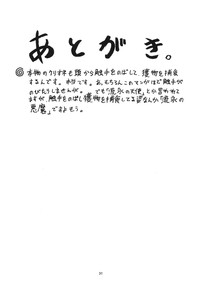 あとがき。
◎本物のクリオネも頭から触手をのばして、獲物を捕食
するんです。本当です。あ、もちろんこのマンガほど触手が
のびたりしませんが。でも「流氷の天使」とか言われて
ますが、触手をのばし獲物を捕食してるさまはなんか「流氷の
悪魔」ですよもう。